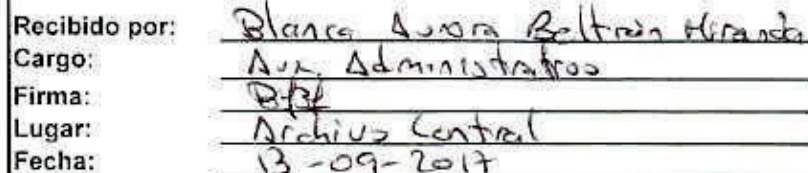 Recibido por: Blanca Aurora Beltrán Miranda
Cargo: Aux. Administrativo
Firma:
Lugar: Archivo Central
Fecha: 13-09-2017